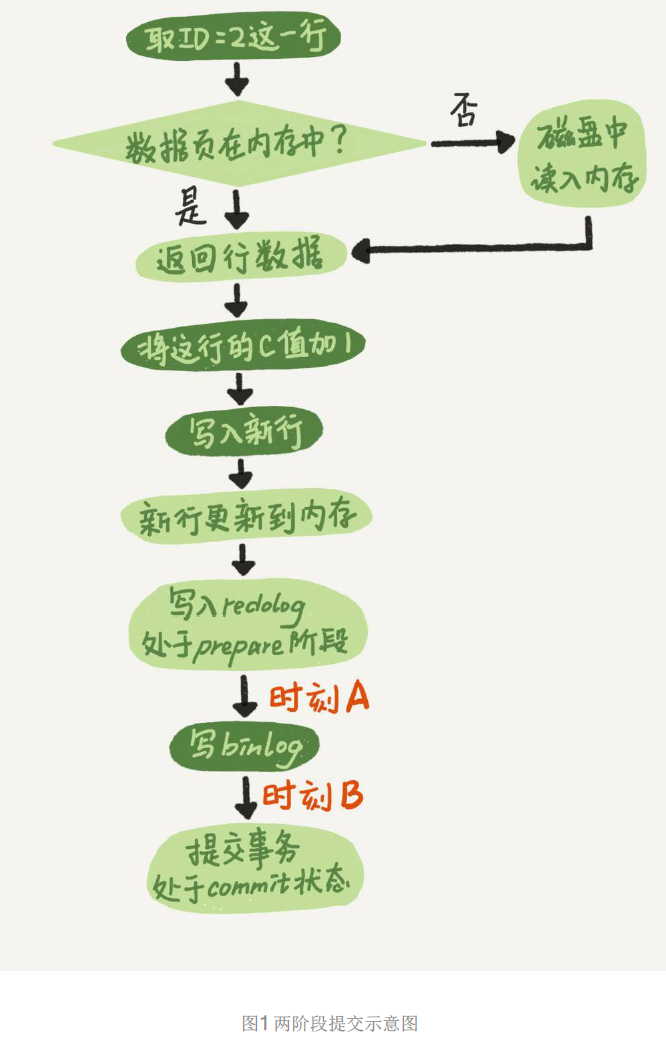 取ID=2这一行
数据页在内存中?
否
磁盘中
读入内存
是
返回行数据
将这行的C值加1
写入新行
新行更新到内存
写入redolog
处于prepare阶段
时刻A
写binlog
时刻B
提交事务
处于commit状态
图1 两阶段提交示意图